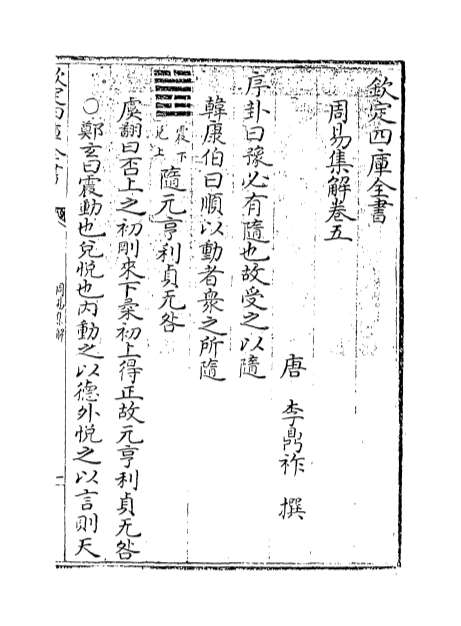 欽定四庫全書
周易集解卷五
唐 李鼎祚 撰
序卦曰豫必有隨也故受之以隨
韓康伯曰順以動者衆之所隨
震下
兌上
隨元亨利貞无咎
虞翻曰否上之初剛來下柔初上得正故元亨利貞无咎
○鄭玄曰震動也兌悅也内動之以德外悅之以言則天
欽定四庫全書
周易集解